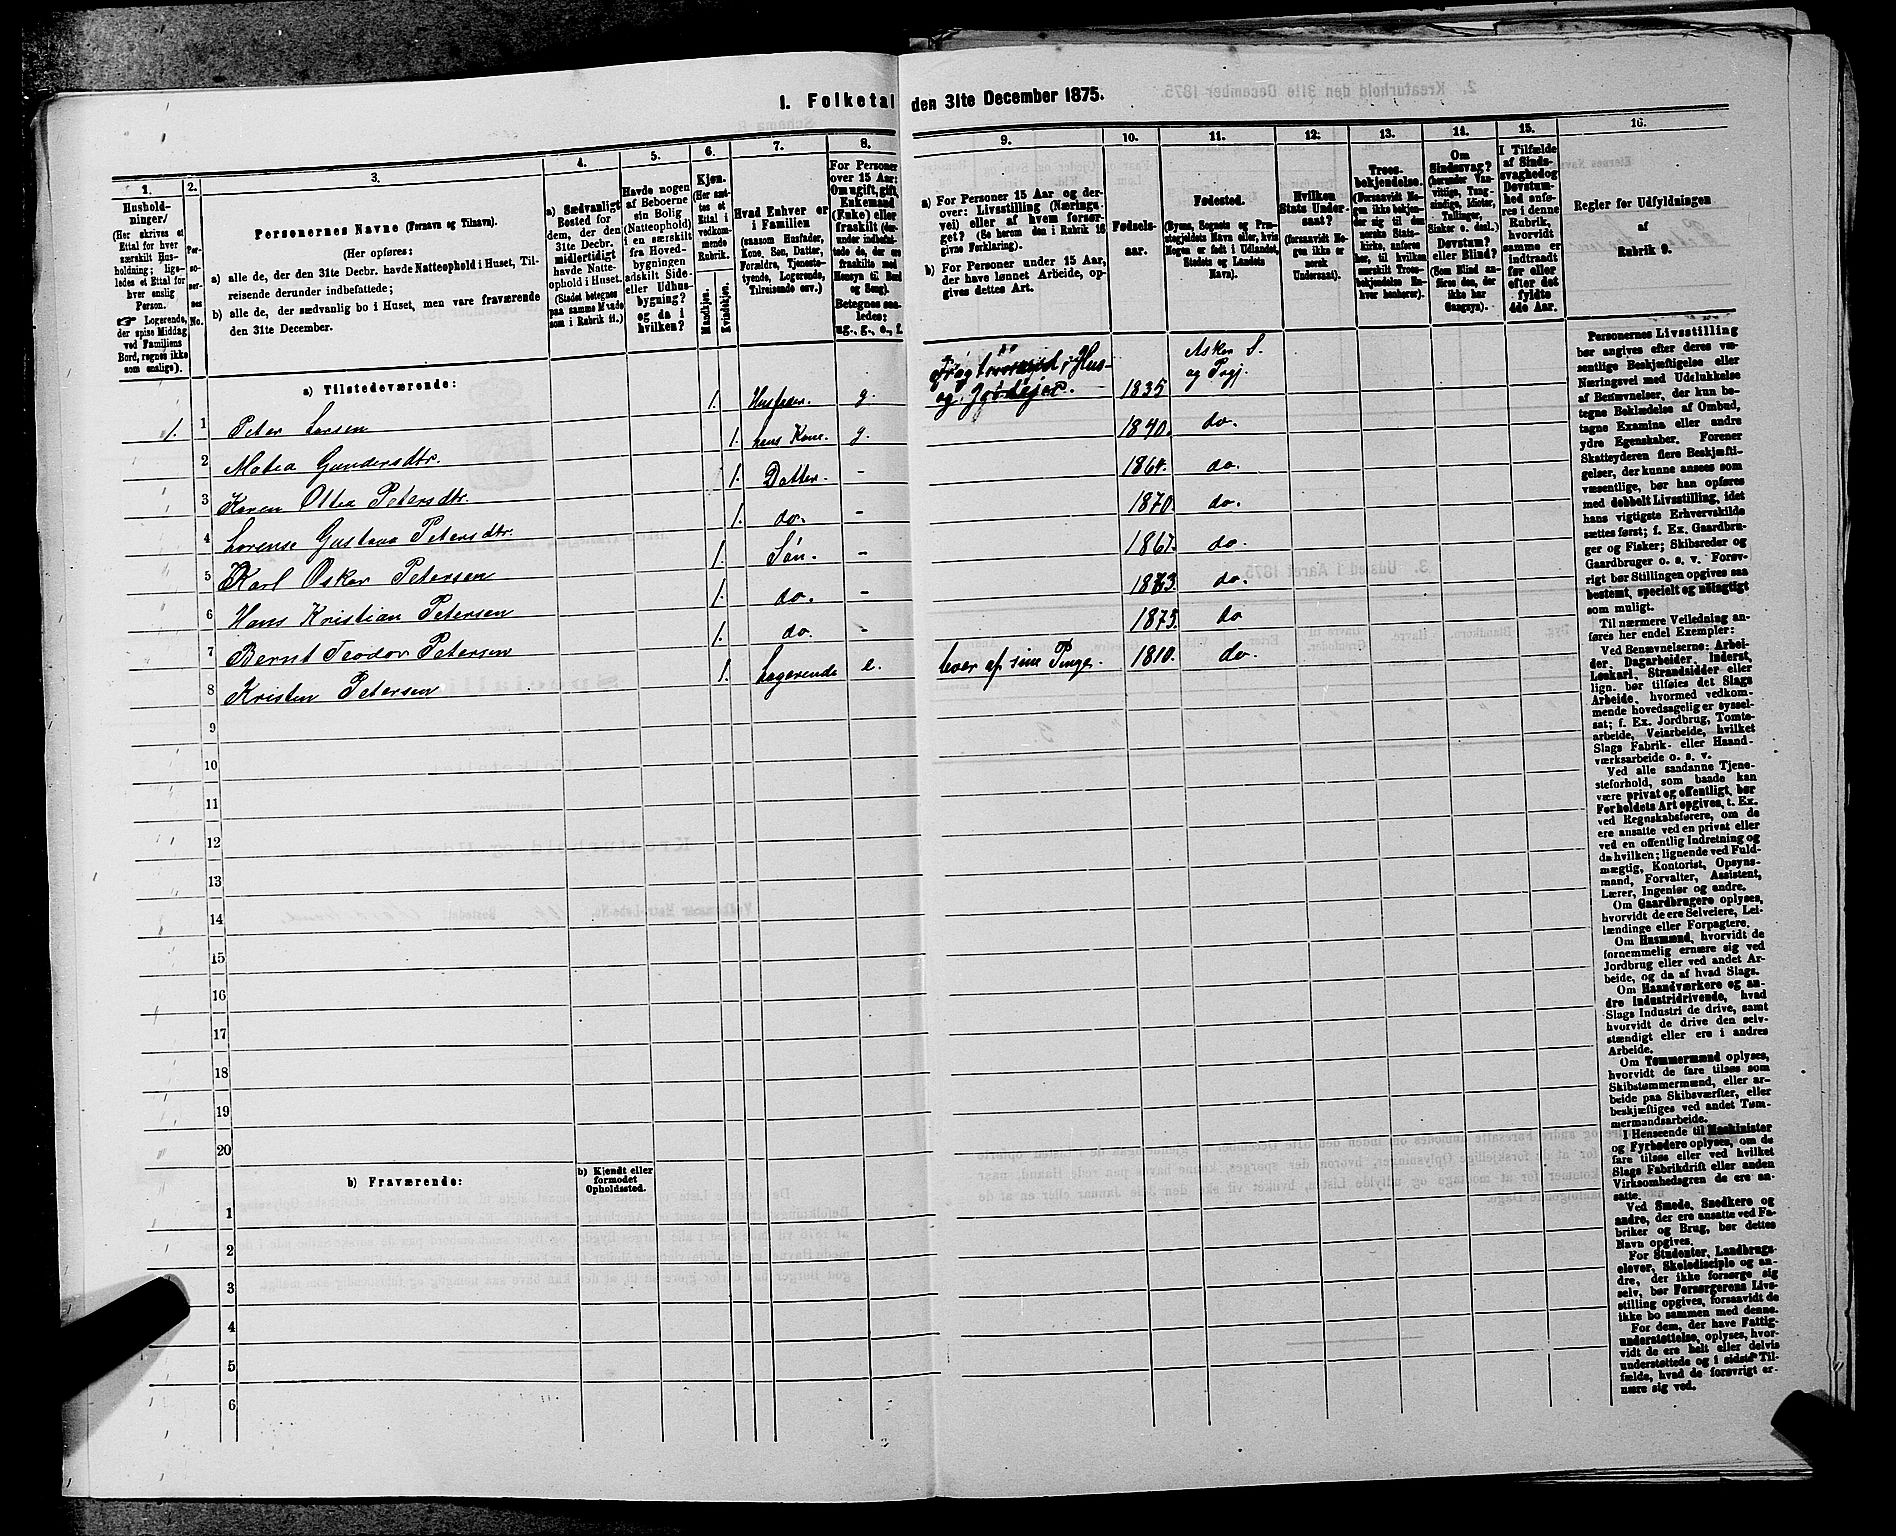 1. Folketal den 31te December 1875.
1.
Hushold-
ninger/
(Her skrives et
Ettal for hver
særskilt Hus-
holdning; lige-
ledes et Ettal for
hver enslig
Person.
☞ Logerende,
der spise Middag
ved Familiens
Bord, regnes ikke
som enslige).
2.
Per-
so-
ner-
nes
No.
3.
Personernes Navne (Fornavn og Tilnavn).
(Her opføres:
a) alle de, der den 31te Decbr. havde Natteophold i Huset, Til-
reisende derunder indbefattede;
b) alle de, der sædvanlig bo i Huset, men vare fraværende
den 31te December.
4.
a) Sædvanligt
Bosted for
dem, der den
31te Decbr.
midlertidigt
havde Natte-
ophold i Huset.
(Stedet betegnes
paa samme Maade
som i Rubrik 11.)
5.
Havde nogen
af Beboerne
sin Bolig
(Natteophold)
i en særskilt
fra Hoved-
bygningen
adskilt Side-
eller Udhus-
bygning?
og da i
hvilken?
6.
Kjøn.
(Her sæt-
tes et
Ettal i
vedkom-
mende
Rubrik.
Mandkjøn.
Kvindekjøn.
7.
Hvad Enhver er
i Familien
(saasom Husfader,
Kone, Søn, Datter,
Forældre, Tjeneste-
tyende, Logerende,
Tilreisende osv.)
8.
For Personer
over 15 Aar:
Om ugift, gift,
Enkemand
(Enke) eller
fraskilt (der-
under indbefat-
tede de, der ere
fraskilte med
Hensyn til Bord
og Seng).
Betegnes saa-
ledes:
ug., g., e., f.
9.
a) For Personer 15 Aar og der-
over: Livsstilling (Nærings-
vei) eller af hvem forsør-
get? (Se herom den i Rubrik 16
givne Forklaring).
b) For Personer under 15 Aar,
der have lønnet Arbeide, op-
gives dettes Art.
10.
Fødsels-
aar.
11.
Fødested.
(Byens, Sognets og Præ-
stegjeldets Navn eller, hvis
Nogen er født i Udlandet,
Stedets og Landets
Navn).
12.
Hvilken
Stats Under-
saat?
(forsaavidt No-
gen ikke er
norsk
Undersaat).
13.
Troes-
bekjendelse.
(Forsaavidt No-
gen ikke bekjen-
der sig til den
norske Stats-
kirke, anføres
her, til hvilken
særskilt Troes-
bekjendelse En-
hver henhører).
14.
Om
Sindssvag?
(herunder Van-
vittige, Tung-
sindige, Idioter,
Tullinger,
Sinker o. desl.)
Døvstum?
eller Blind?
(Som Blind an-
føres den, der
ikke har
Gangsyn).
15.
I Tilfælde
af Sinds-
svaghed og
Døvstum-
hed anfø-
res i denne
Rubrik,
hvorvidt
samme er
indtraadt
før eller
efter det
fyldte
4de Aar.
16.
Regler for Udfyldningen
af
Rubrik 9.
a) Tilstedeværende:
1. 1 Peter Larsen 1. Husfader. g. og 1835 Asker S. og Prgj.
2 Matea Gundersdtr. 1. hans Kone. g. 1840. do.
3 Karen Ottea Petersdtr. 1. Datter. - 1864. do.
4 Lorense Gustava Petersdtr. 1. do. - 1870. do.
5 Karl Oskar Petersen 1. Søn. - 1867. do.
6 Hans Kristian Petersen 1. do. - 1873. do.
7 Bernt Teodor Petersen 1. do. - 1875. do
8 Kristen Petersen 1. Logerende e. lever af sine Penge. 1810. do.
9
10
11
12
13
14
15
16
17
18
19
20
b) Fraværende:
b) Kjendt eller
formodet
Opholdssted.
1
2
3
4
5
6
Personernes Livsstilling
bør angives efter deres væ-
sentlige Beskjæftigelse eller
Næringsvei med Udelukkelse
af Benævnelser, der kun be-
tegne Beklædelse af Ombud,
tagne Examina eller andre
ydre Egenskaber. Forener
Skatteyderen flere Beskjæfti-
gelser, der kunne ansees som
væsentlige, bør han opføres
med dobbelt Livsstilling, idet
hans vigtigste Erhvervskilde
sættes først; f. Ex. Gaardbru-
ger og Fisker; Skibsreder og
Gaardbruger o. s. v. Forøv-
rigt bør Stillingen opgives saa
bestemt, specielt og nøiagtigt
som muligt.
Til nærmere Veiledning an-
føres her endel Exempler:
Ved Benævnelserne: Arbei-
der, Dagarbeider, Inderst,
Løskarl, Strandsidder eller
lign. bør tilføies det Slags
Arbeide, hvormed vedkom-
mende hovedsagelig er syssel-
sat; f. Ex. Jordbrug, Tomte-
arbeide, Veiarbeide, hvilket
Slags Fabrik- eller Haand-
værksarbeide o. s. v.
Ved alle saadanne Tjene-
steforhold, som baade kan
være privat og offentligt, bør
Forholdets Art opgives, t. Ex.
ved Regnskabsførere, om de
ere ansatte ved en privat eller
ved en offentlig Indretning og
da hvilken; lignende ved Fuld-
mægtig, Kontorist, Opsyns-
mand, Forvalter, Assistent,
Lærer, Ingeniør og andre.
Om Gaardbrugere oplyses,
hvorvidt de ere Selveiere, Lei-
lændinge eller Forpagtere.
Om Husmænd, hvorvidt de
fornemmelig ernære sig ved
Jordbrug eller ved andet Ar-
beide, og da af hvad Slags.
Om Haandværkere og an-
dre Industridrivende, hvad
Slags Industri de drive, samt
hvorvidt de drive den selv-
stændigt eller ere i andres
Arbeide.
Om Tømmermænd oplyses,
hvorvidt de fare tilsøs som
Skibstømmermænd, eller ar-
beide paa Skibsværfter, eller
beskjæftiges ved andet Tøm-
mermandsarbeide.
I Henseende til Maskinister
og Fyrbødere oplyses, om de
fare tilsøs eller ved hvilket
Slags Fabrikdrift eller anden
Virksomhedsgren de ere an-
satte.
Ved Smede, Snedkere og
andre, der ere ansatte ved Fa-
briker og Brug, bør dettes
Navn opgives.
For Studenter, Landbrugs-
elever, Skoledisciple og an-
dre, der ikke forsørge sig
selv, bør Forsørgerens Livs-
stilling opgives, forsaavidt de
ikke bo sammen med denne.
For dem, der have Fattig-
understøttelse, oplyses, hvor-
vidt de ere helt eller delvis
understøttede og i sidste Til-
fælde, hvad de forøvrigt er-
nære sig ved.